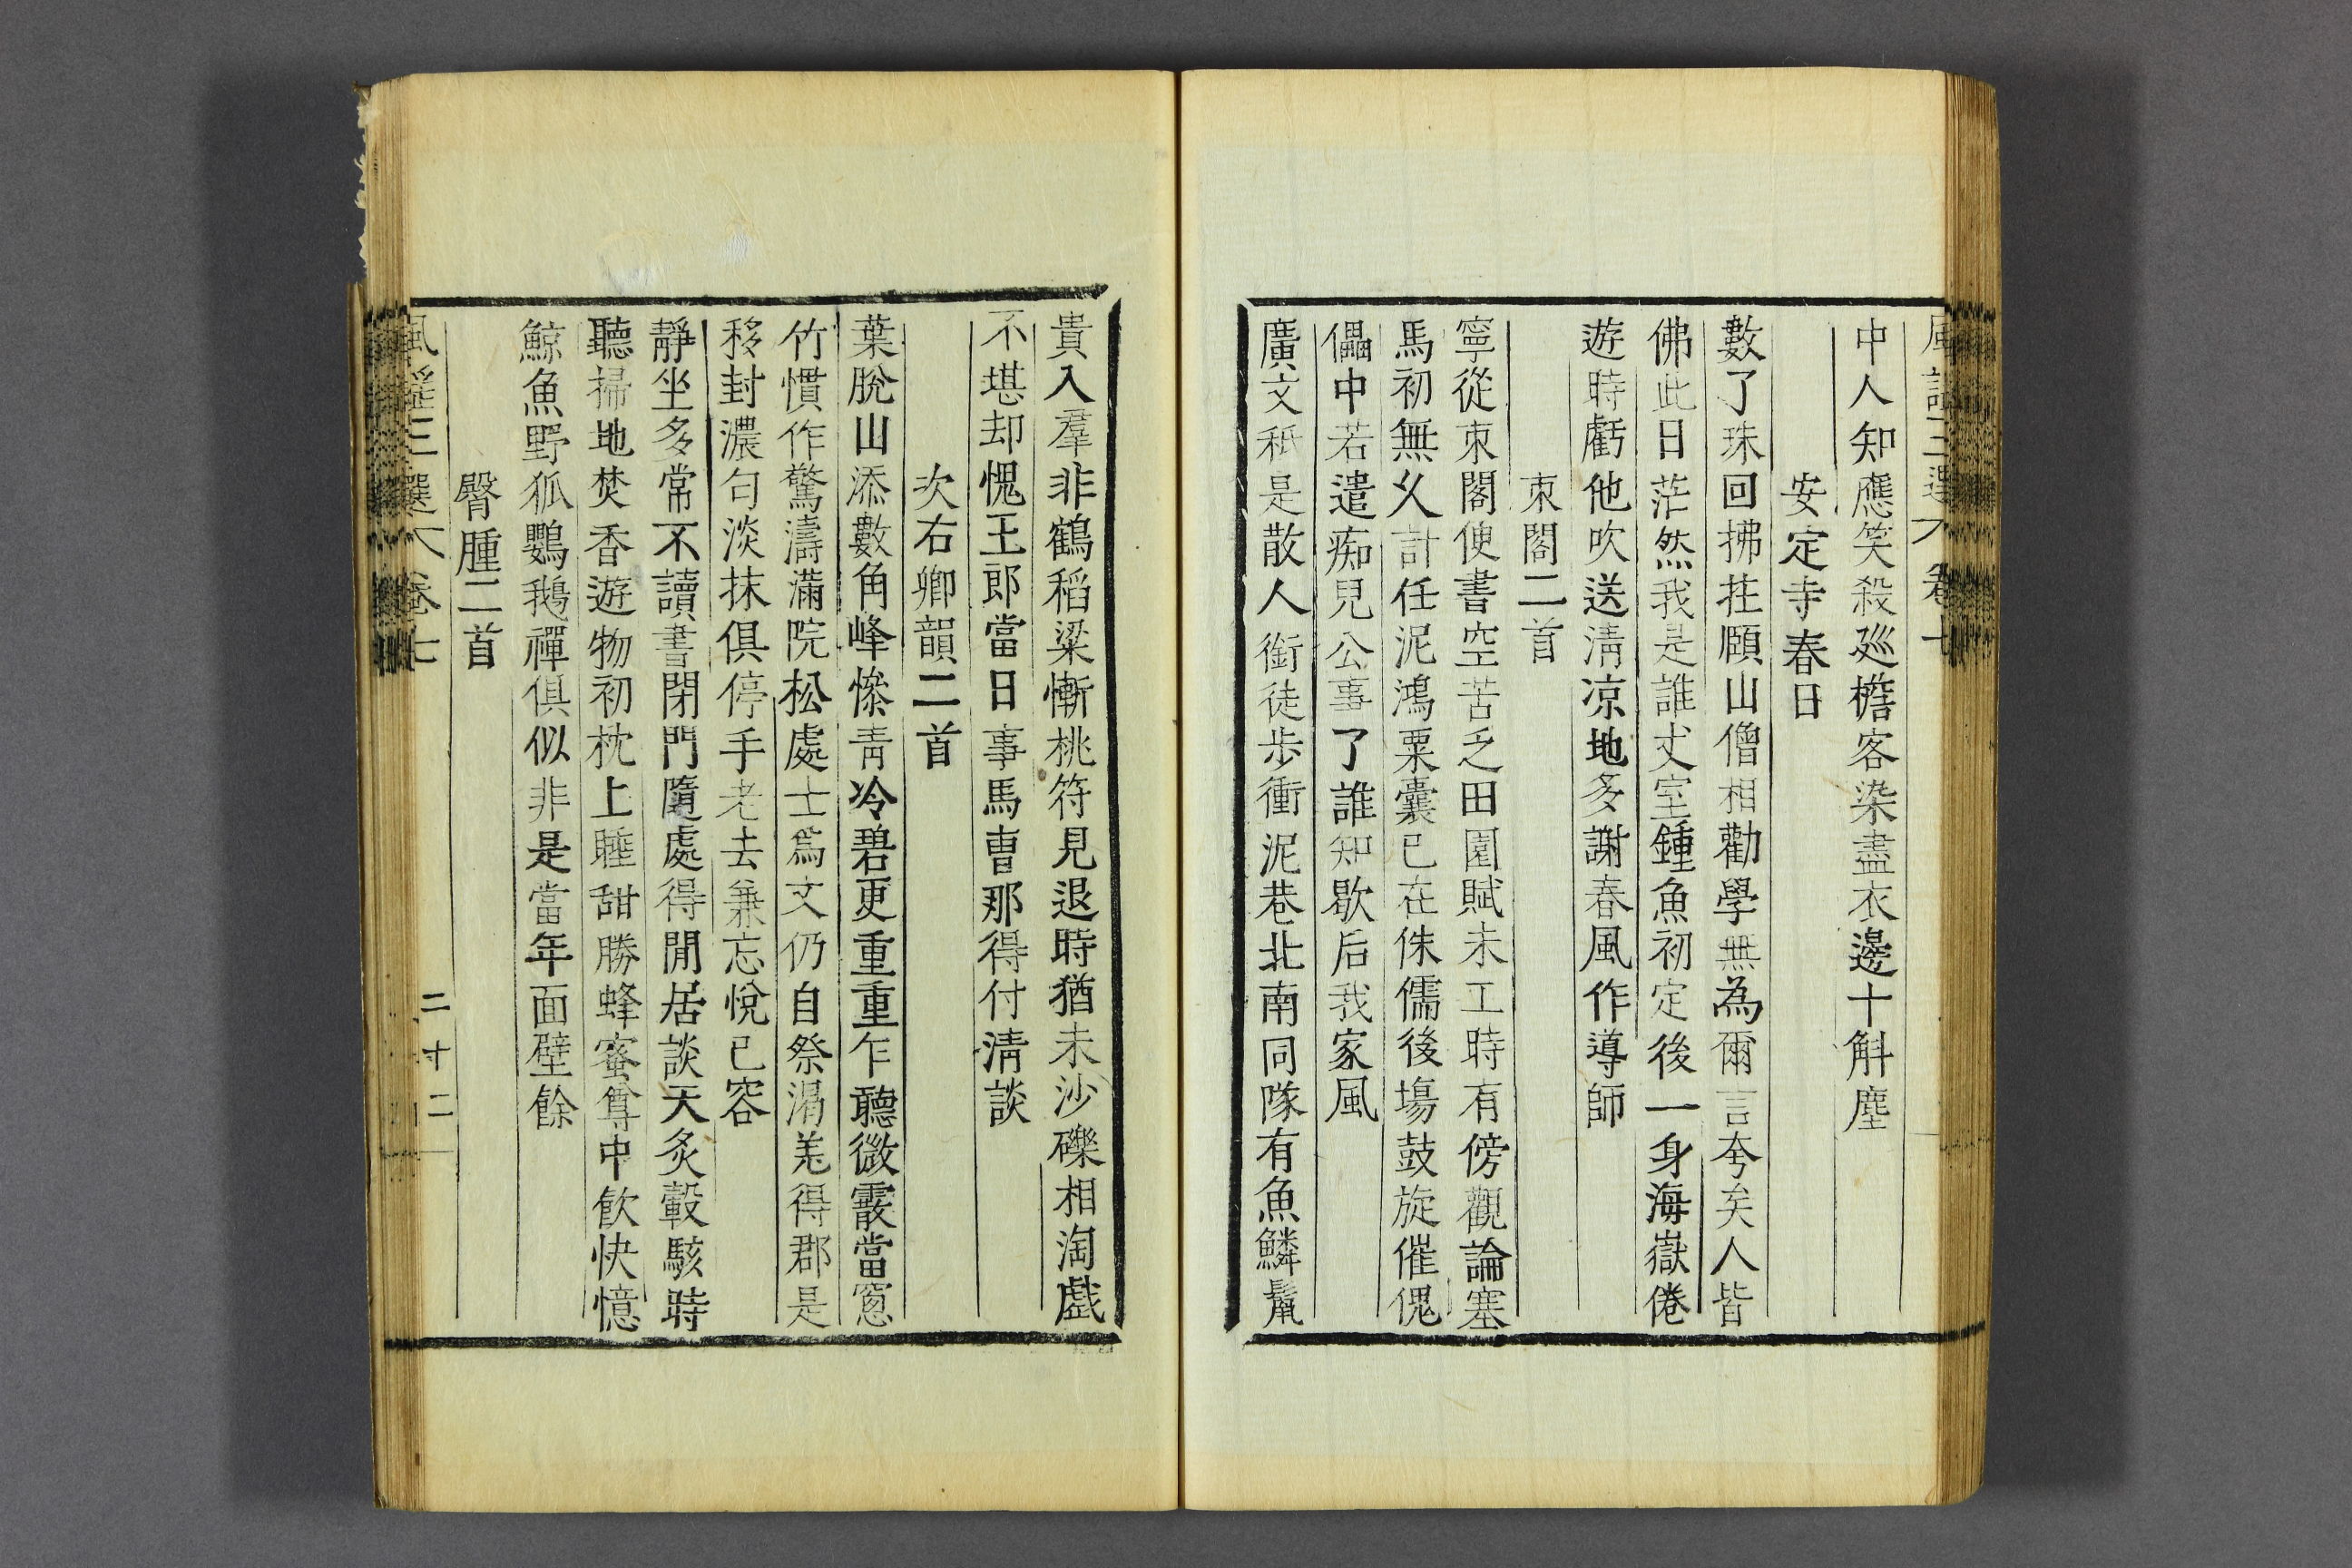 風謠三選 卷七
中人知應笑殺廵檐客染盡衣邊十斛塵
安定寺春日
數了珠回拂拄頤山僧相勸學無為爾言夸矣人皆
佛此日茫然我是誰丈室鍾魚初定後一身海嶽倦
遊時虧他吹送淸凉地多謝春風作導師
東閣二首
寧從東閣使書空苦乏田園賦未工時有傍觀論塞
馬初無久計任泥鴻粟囊已在侏儒後塲鼓旋催傀
儡中若遣痴兒公事了誰知歇后我家風
廣文秖是散人銜徒步衝泥巷北南同隊有魚鱗鬣
貴入羣非鶴稻粱慚桃符見退時猶未沙礫相淘戲
不堪却愧王郞當日事馬曹那得付淸談
次右卿韻二首
葉脫山添數角峰慘靑冷碧更重重乍聽微霰當窓
竹慣作驚濤滿院松處士爲文仍自祭渴羌得郡是
移封濃勻淡抹俱停手老去兼忘悅已容
靜坐多常不讀書閉門隨處得閒居談天炙轂駭時
聽掃地焚香遊物初枕上睡甜勝蜂蜜尊中飮快憶
鯨魚野狐鸚鵝禪俱似非是當年面壁餘
臀腫二首
風謠三選 卷七
二十二